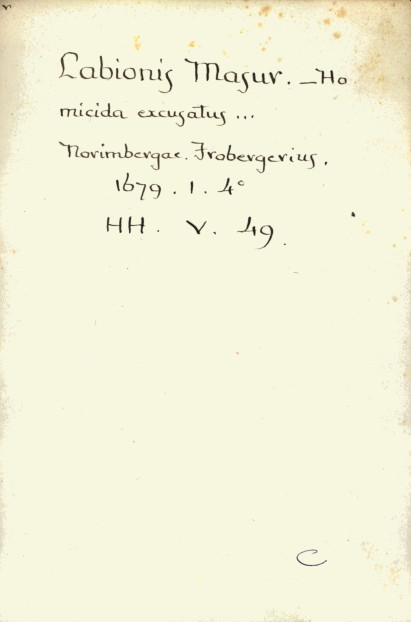 Labionis Masur. _ Ho
micida excusatus ...
Norimbergae. Frobergerius.
1679. 1. 4°
HH. V. 49.
C